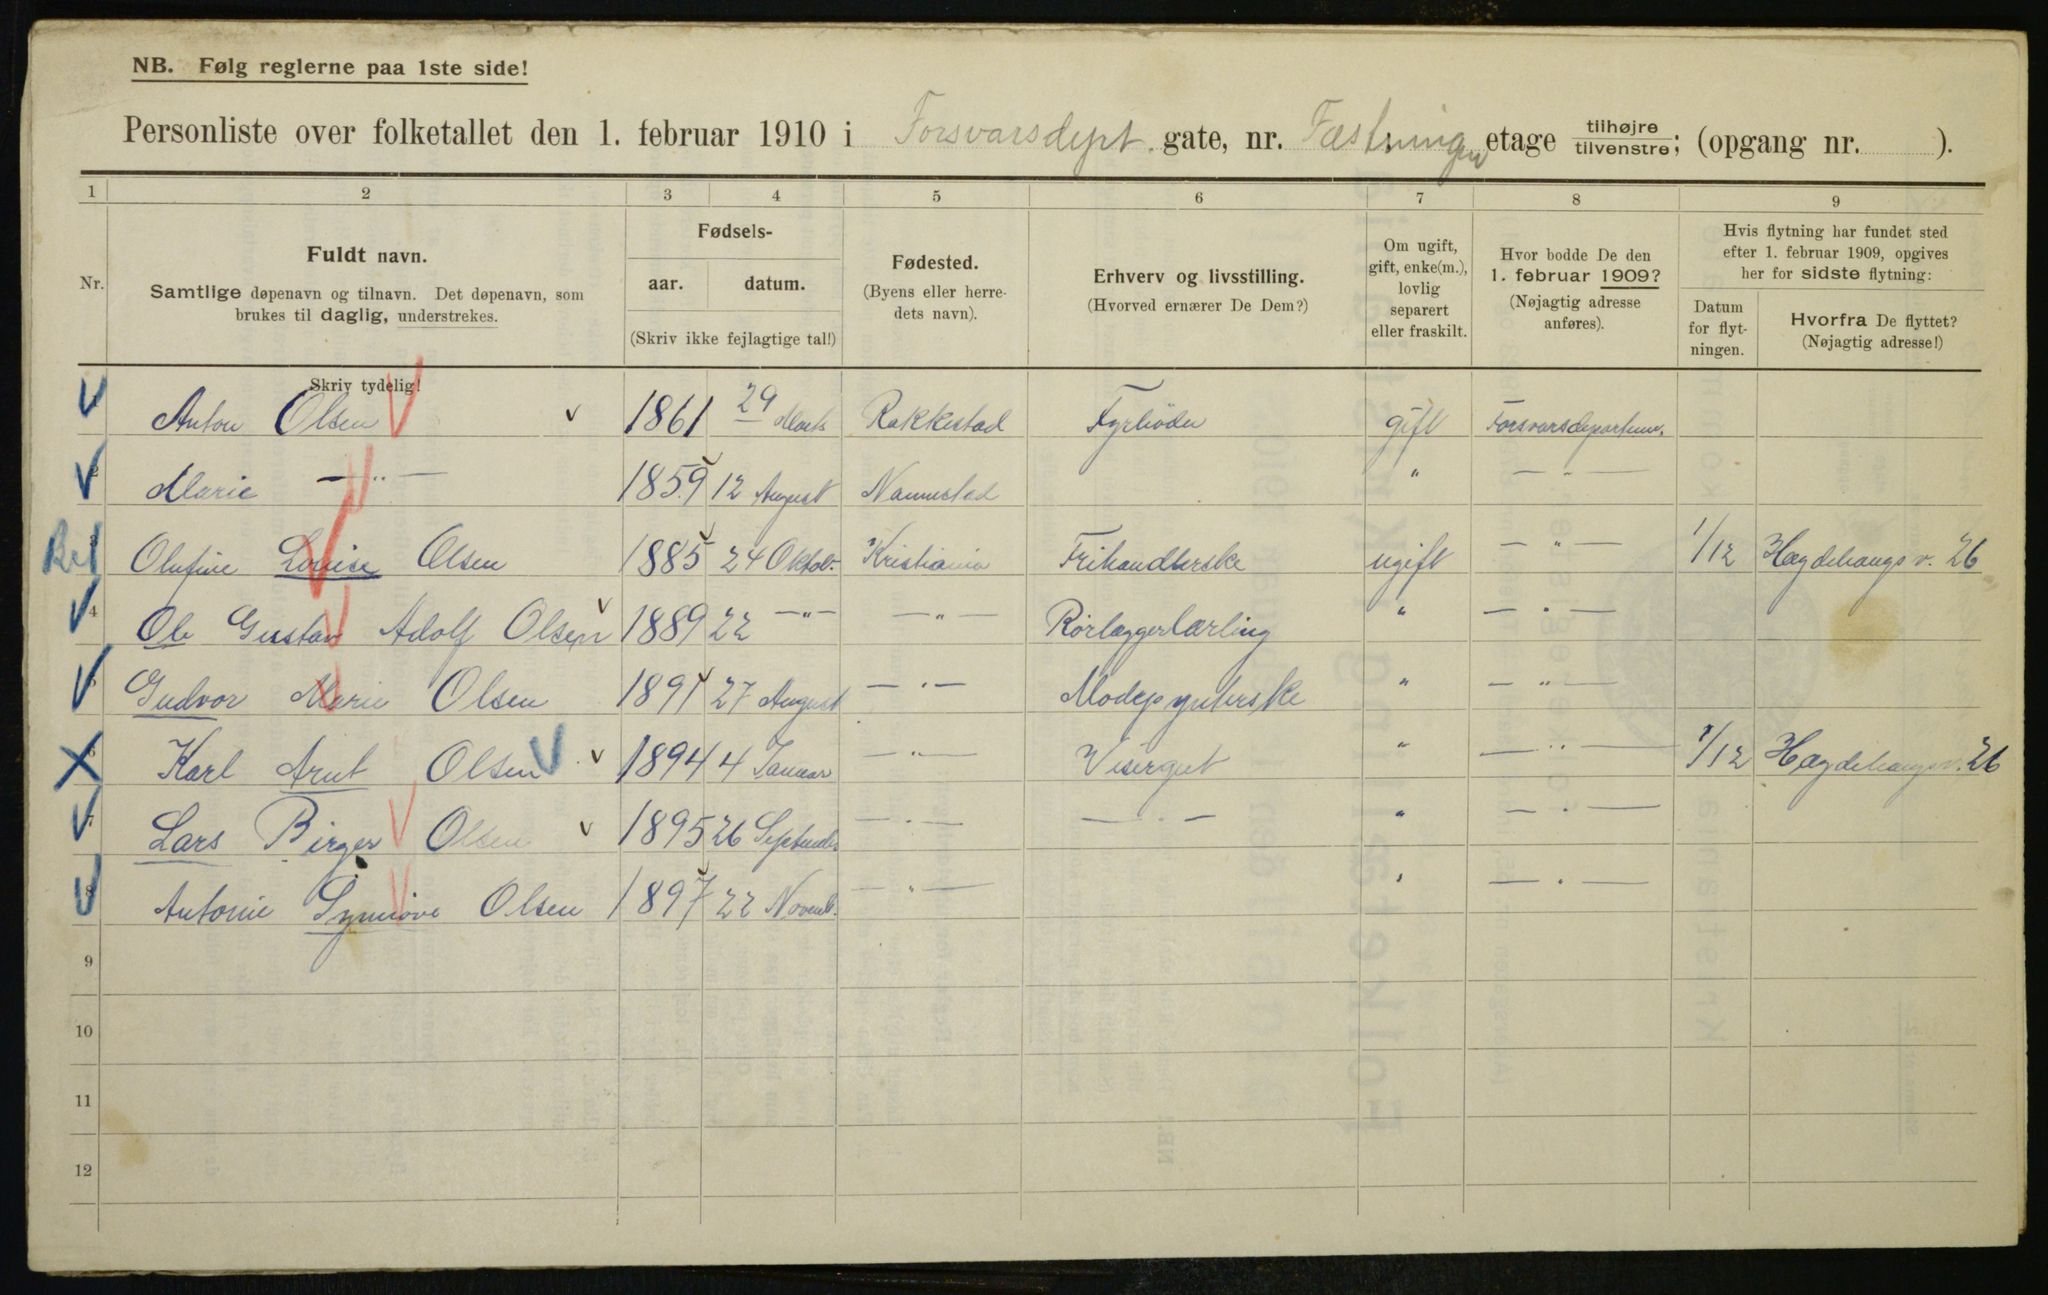 NB. Følg reglerne paa 1ste side!
Personliste over folketallet den 1. februar 1910 i Forsvarsdept. gate, nr. Fæstningen etage tilhøjre tilvenstre; (opgang nr. ).
1 2 3 4 5 6 7 8 9
Nr.
Fuldt navn.
Samtlige døpenavn og tilnavn. Det døpenavn, som
brukes til daglig, understrekes.
Skriv tydelig!
Fødsels-
aar. datum.
(Skriv ikke fejlagtige tal!)
Fødested.
(Byens eller herre-
dets navn).
Erhverv og livsstilling.
(Hvorved ernærer De Dem?)
Om ugift,
gift, enke(m.),
lovlig
separert
eller fraskilt.
Hvor bodde De den
1. februar 1909?
(Nøjagtig adresse
anføres).
Hvis flytning har fundet sted
efter 1. februar 1909, opgives
her for sidste flytning:
Datum
for flyt-
ningen.
Hvorfra De flyttet?
(Nøjagtig adresse!)
1 Anton Olsen 1861 29 Marts Rakkestad Fyrbøder gift Forsvarsdepartem.
2 Marie —"— 1859 12 August Nannestad " —"—
3 Olufine Louise Olsen 1885 24 Oktob. Kristiania Frihandlerske ugift —"— 1/12 Hægdehaugsv. 26
4 Ole Gustav Adolf Olsen 1889 22 —"— —"— Rørlæggerlærling " —"—
5 Gudvor Marie Olsen 1891 27 August —"— Modepynterske " —"—
6 Karl Arnt Olsen 1894 4 Januar —"— Visergut " —"— 1/12 Hægdehaugsv. 26
7 Lars Birger Olsen 1895 26 September —"— —"— " —"—
8 Antonie Synnøve Olsen 1897 22 Novemb. —"— " —"—
9
10
11
12